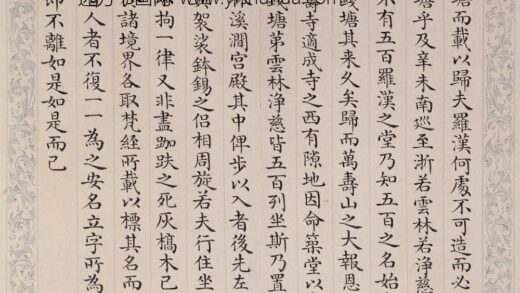 塘而載以歸夫羅漢何處不可造而必
塘乎及辛未南巡至浙若雲林若淨慈
不有五百羅漢之堂乃知五百之名始
錢塘其來久矣歸而萬壽山之大報恩
壽寺適成寺之西有隙地因命築堂以
錢塘第雲林淨慈皆五百列坐斯乃置
林溪澗宮殿其中俾步以入者後先左
袈裟鉢錫之侶相周旋若夫行住坐
拘一律又非盡跏趺之死灰槁木已
諸境界各取梵經所載以標其名而
人者不復一一為之安名立字所為
即不離如是如是而已